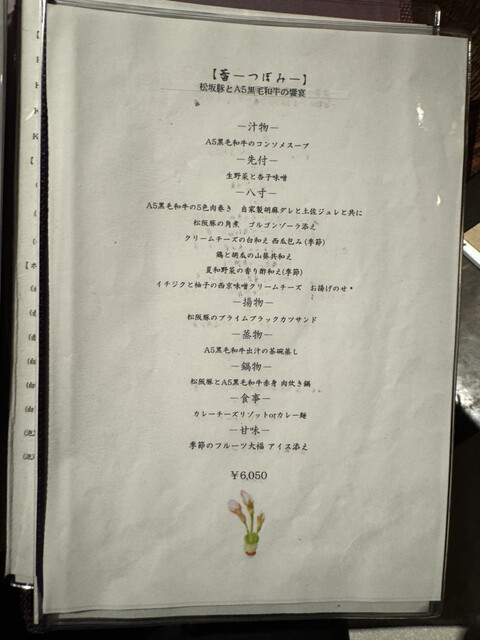 【蕾―つぼみ―】
松坂豚とA5黒毛和牛の饗宴
―汁物―
A5黒毛和牛のコンソメスープ
―先付―
生野菜と杏子味噌
―八寸―
A5黒毛和牛の5色肉巻き 自家製胡麻ダレと土佐ジュレと共に
松阪豚の角煮 ゴルゴンゾーラ添え
クリームチーズの白和え 西瓜包み(季節)
鶏と胡瓜の山葵共和え
夏和野菜の香り酢和え(季節)
イチジクと柚子の西京味噌クリームチーズ お揚げのせ*
―揚物―
松阪豚のプライムブラックカツサンド
―蒸物―
A5黒毛和牛出汁の茶碗蒸し
―鍋物―
松阪豚とA5黒毛和牛赤身 肉炊き鍋
―食事―
カレーチーズリゾットorカレー麺
―甘味―
季節のフルーツ大福 アイス添え
￥6,050